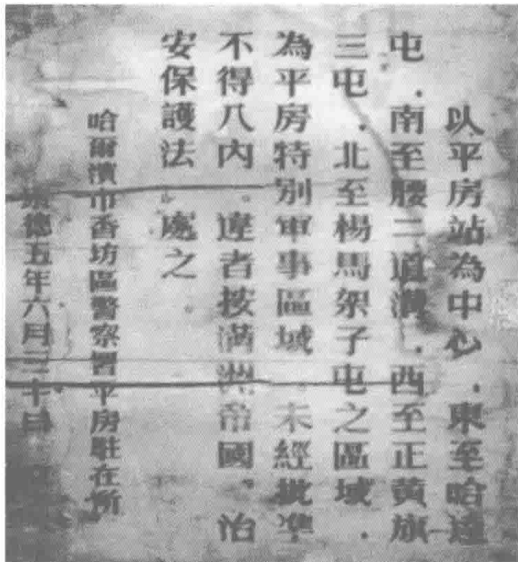 以平房站為中心．東至哈達
屯．南至腰二道溝．西至正黃旗
三屯．北至楊馬架子屯之區域．
為平房特別軍事區域．未經批準
不得八內．違者按滿洲帝國．治
安保護法．處之．
哈爾濱市香坊區警察署平房駐在所
康德五年六月三十日